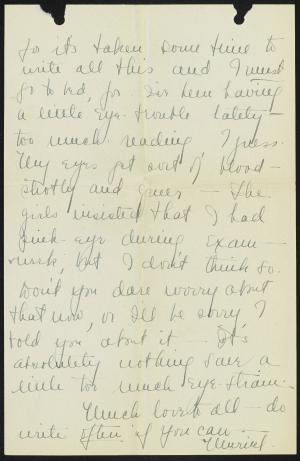 for it's taken some time to
write all this and I must
go to bed, for I've been having
a little eye-trouble lately—
too much reading I guess.
My eyes get sort o' blood-
shotty and queer — The
girls insisted that I had
pink-eye during exam—
week, but I don't think so.
Don't you dare worry about
that now, or I'll be sorry I
told you about it — It's
absolutely nothing save a
little too much eye-strain.
Much love to all — do
write often if you can —
Muriel.